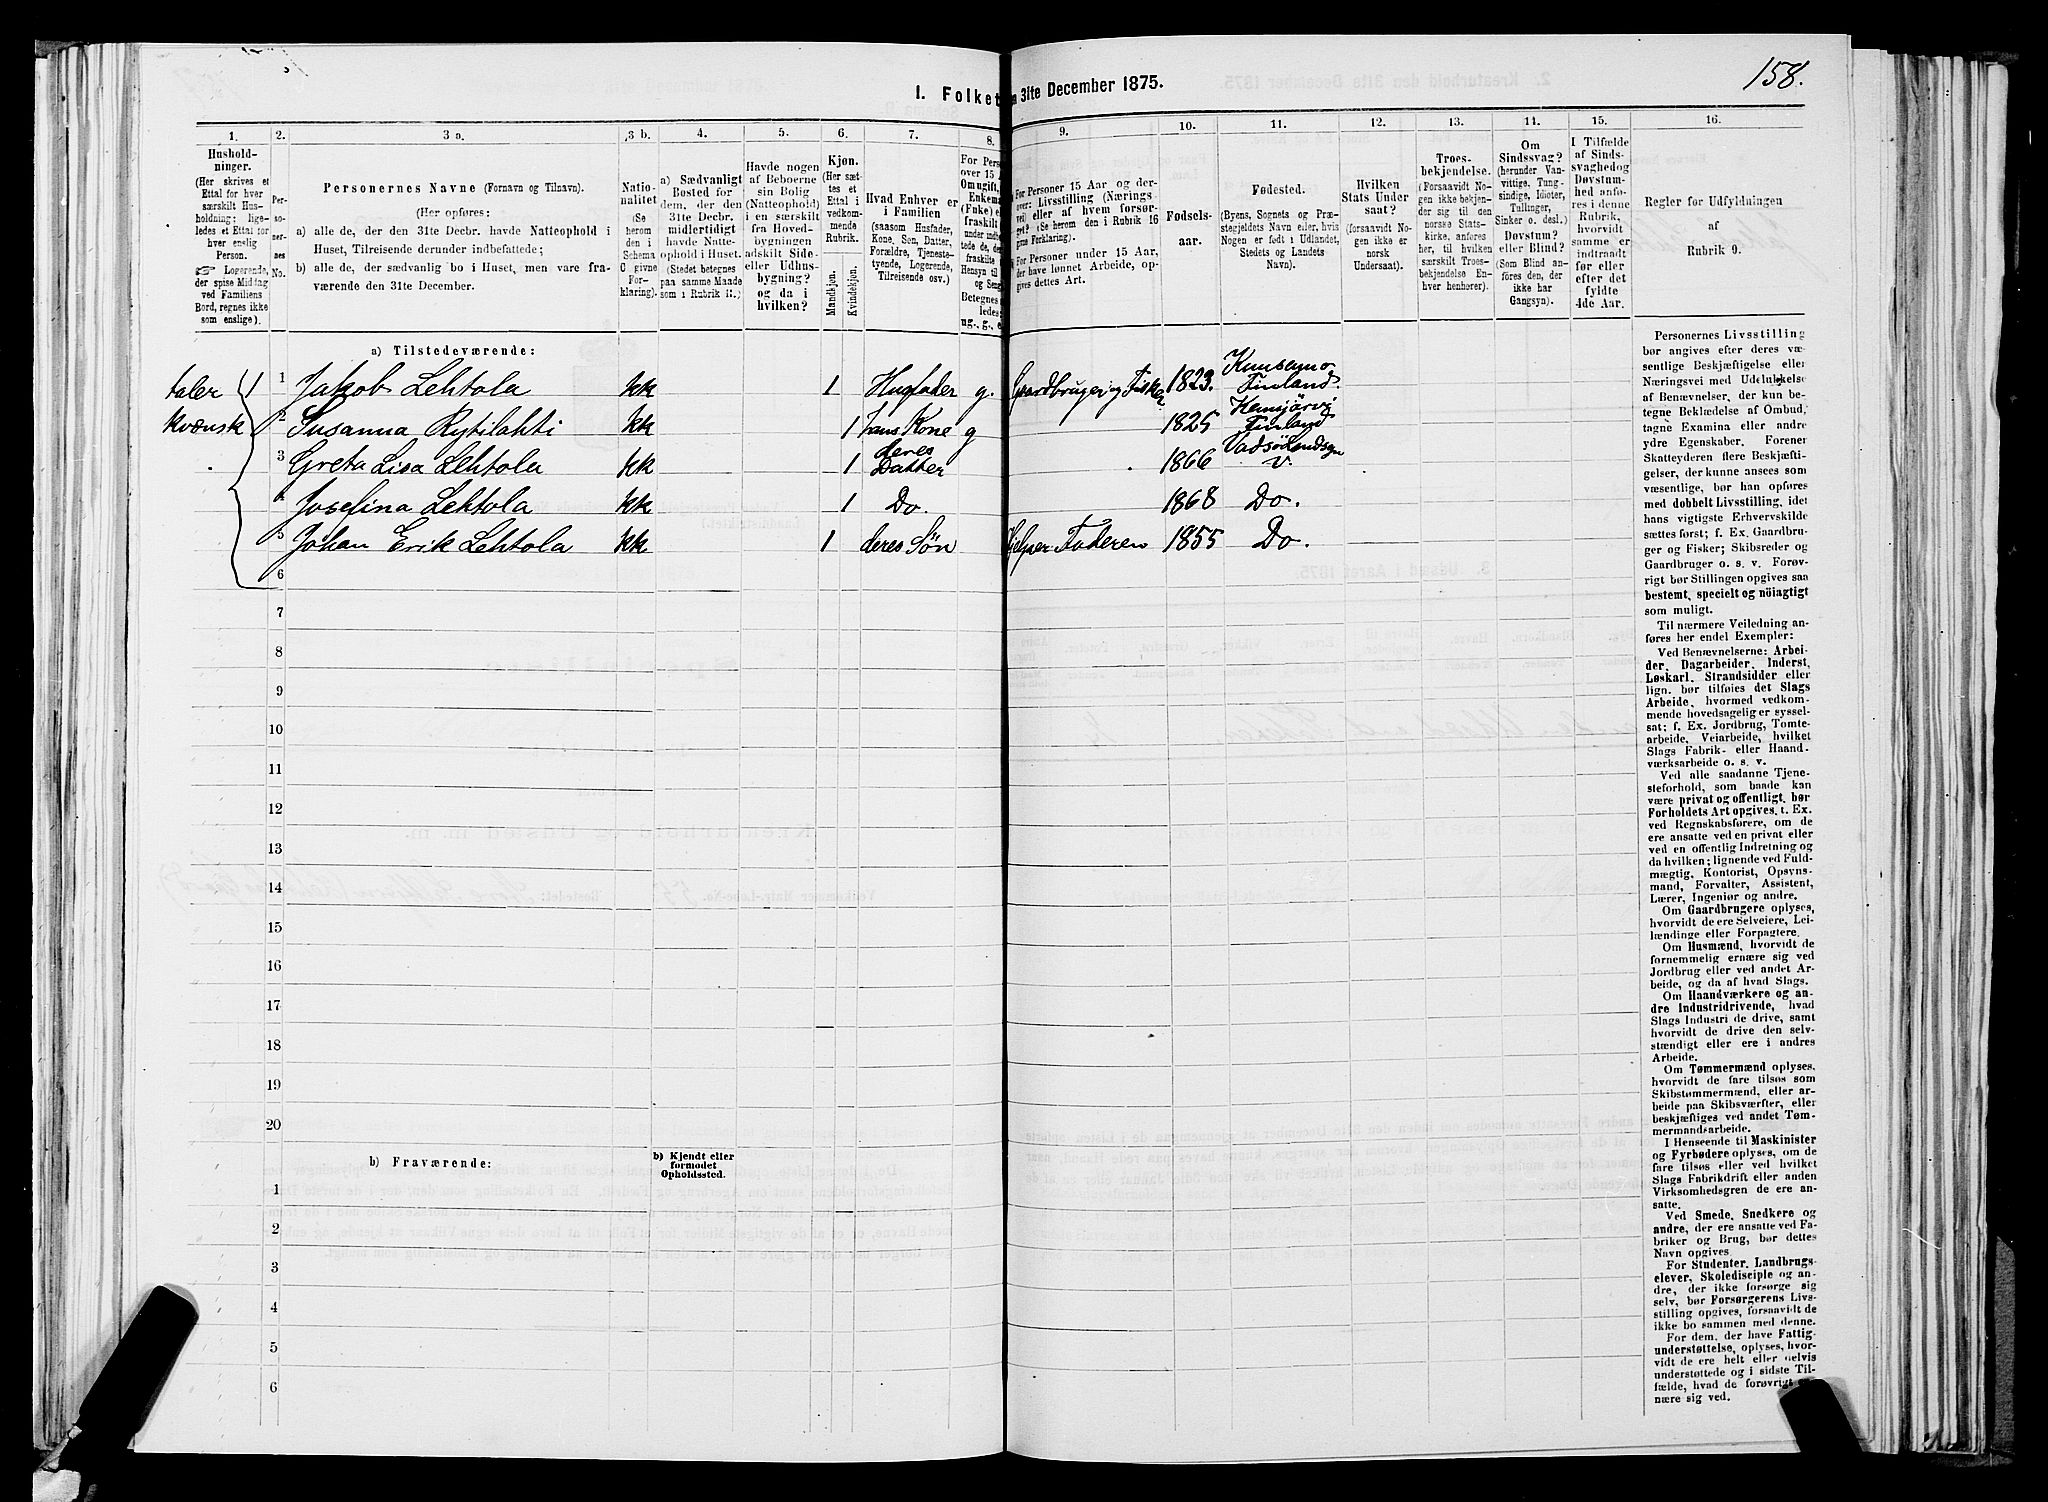 158.
I. Folket
n 31te December 1875.
1. 2. 3 a. 3 b. 4. 5. 6. 7. 8. 9. 10. 11. 12. 13. 14. 15. 16.
Hushold-
ninger.
(Her skrives et
Ettal for hver
særskilt Hus-
holdning; lige-
ledes et Ettal for
hver enslig
Person.
☞ Logerende,
der spise Middag
ved Familiens
Bord, regnes ikke
som enslige).
Per-
so-
ner-
nes
No.
Personernes Navne (Fornavn og Tilnavn).
(Her opføres:
a) alle de, der den 31te Decbr. havde Natteophold i
Huset, Tilreisende derunder indbefattede;
b) alle de, der sædvanlig bo i Huset, men vare fra-
værende den 31te December.
Natio-
nalitet
(Se
herom
den i
Schema
C givne
For-
klaring).
a) Sædvanligt
Bosted for
dem, der den
31te Decbr.
midlertidigt
havde Natte-
ophold i Huset.
(Stedet betegnes
paa samme Maade
som i Rubrik 11.)
Havde nogen
af Beboerne
sin Bolig
(Natteophold)
i en særskilt
fra Hoved-
bygningen
adskilt Side-
eller Udhus-
bygning?
og da i
hvilken?
Kjøn.
(Her sæt-
tes et
Ettal i
vedkom-
mende
Rubrik.
Mandkjøn.
Kvindekjøn.
Hvad Enhver er
i Familien
(saasom Husfader,
Kone, Søn, Datter,
Forældre, Tjeneste-
tyende, Logerende,
Tilreisende osv.)
For Pers
over 15 A
Om ugift,
Enkema
(Fuke) e
fraskilt
under ind
tede de, d
fraskilte
Hensyn til
og Seng
Betegnes
ledes:
ug., g., e
For Personer 15 Aar og der-
over: Livsstilling (Nærings-
vei) eller af hvem forsør-
get? (Se herom i Rubrik 16
givne Forklaring).
For Personer under 15 Aar,
der have lønnet Arbeide, op-
gives dettes Art.
Fødsels-
aar.
Fødested.
(Byens, Sognets og Præ-
stegjeldets Navn eller, hvis
Nogen er født i Udlandet,
Stedets og Landets
Navn).
Hvilken
Stats Under
saat?
(forsaavidt No-
gen ikke er
norsk
Undersaat).
Troes-
bekjendelse.
(Forsaavidt No-
gen ikke bekjen-
der sig til den
norske Stats-
kirke, anføres
her, til hvilken
særskilt Troes-
bekjendelse En-
hver henhører).
Om
Sindssvag?
(herunder Van-
vittige, Tung-
sindige, Idioter,
Tullinger,
Sinker o. desl.)
Døvstum?
eller Blind?
(Som Blind an-
føres den, der
ikke har
Gangsyn).
I Tilfælde
af Sinds-
svaghed og
Døvstum-
hed anfø-
res i denne
Rubrik,
hvorvidt
samme er
indtraadt
før eller
efter det
fyldte
4de Aar.
Regler for Udfyldningen
af
Rubrik 9.
a) Tilstedeværende:
taler 1 1 Jakob Lehtola kk 1 Husfader g. Gaardbruger og Fisker 1823. Kuusamo Finland.
kvænsk 2 Susanna Rytilahti kk 1 hans Kone g 1825 Kemijärvi Finland
3 Greta Lisa Lehtola kk 1 deres Datter 1866 Vadsø Landsogn
4 Josefina Lehtola kk 1 Do. 1868 Do.
5 Johan Erik Lehtola kk 1 deres Søn hjelper Faderen 1855 Do.
6
7
8
9
10
11
12
13
14
15
16
17
18
19
20
b) Fraværende:
b) Kjendt eller
formodet
Opholdssted.
1
2
3
4
5
6
Personernes Livsstilling
bør angives efter deres væ-
sentlige Beskjæftigelse eller
Næringsvei med Udelukkelse
af Benævnelser, der kun be-
tegne Beklædelse af Ombud,
tagne Examina eller andre
ydre Egenskaber. Forener
Skatteyderen flere Beskjæfti-
gelser, der kunne ansees som
væsentlige, bør han opføres
med dobbelt Livsstilling, idet
hans vigtigste Erhvervskilde
sættes først; f. Ex. Gaardbru-
ger og Fisker; Skibsreder og
Gaardbruger o. s. v. Forøv-
rigt bør Stillingen opgives saa
bestemt, specielt og nöiagtigt
som muligt.
Til nærmere Veiledning an-
føres her endel Exempler:
Ved Benævnelserne: Arbei-
der, Dagarbeider, Inderst,
Løskarl, Strandsidder eller
lign. bør tilføies det Slags
Arbeide, hvormed vedkom-
mende hovedsagelig er syssel-
sat; f. Ex. Jordbrug, Tomte-
arbeide, Veiarbeide, hvilket
Slags Fabrik- eller Haand-
værksarbeide o. s. v.
Ved alle saadanne Tjene-
steforhold, som baade kan
være privat og offentligt, bør
Forholdets Art opgives, t. Ex.
ved Regnskabsførere, om de
ere ansatte ved en privat eller
ved en offentlig Indretning og
da hvilken; lignende ved Fuld-
mægtig, Kontorist, Opsyns-
mand, Forvalter, Assistent,
Lærer, Ingeniør og andre.
Om Gaardbrugere oplyses,
hvorvidt de ere Selveiere, Lei-
lændinge eller Forpagtere.
Om Husmænd, hvorvidt de
fornemmelig ernære sig ved
Jordbrug eller ved andet Ar-
beide, og da af hvad Slags.
Om Haandværkere og an-
dre Industridrivende, hvad
Slags Industri de drive, samt
hvorvidt de drive den selv-
stændigt eller ere i andres
Arbeide.
Om Tømmermænd oplyses,
hvorvidt de fare tilsøs som
Skibstømmermænd, eller ar-
beide paa Skibsværfter, eller
beskjæftiges ved andet Tøm-
mermandsarbeide.
I Henseende til Maskinister
og Fyrbødere oplyses, om de
fare tilsøs eller ved hvilket
Slags Fabrikdrift eller anden
Virksomhedsgren de ere an-
satte.
Ved Smede, Snedkere og
andre, der ere ansatte ved Fa-
briker og Brug, bør dettes
Navn opgives.
For Studenter, Landbrugs-
elever, Skoledisciple og an-
dre, der ikke forsørge sig
selv, bør Forsørgerens Livs-
stilling opgives, forsaavidt de
ikke bo sammen med denne.
For dem, der have Fattig-
understøttelse, oplyses, hvor-
vidt de ere helt eller delvis
understøttede og i sidste Til-
fælde, hvad de forøvrigt er-
nære sig ved.